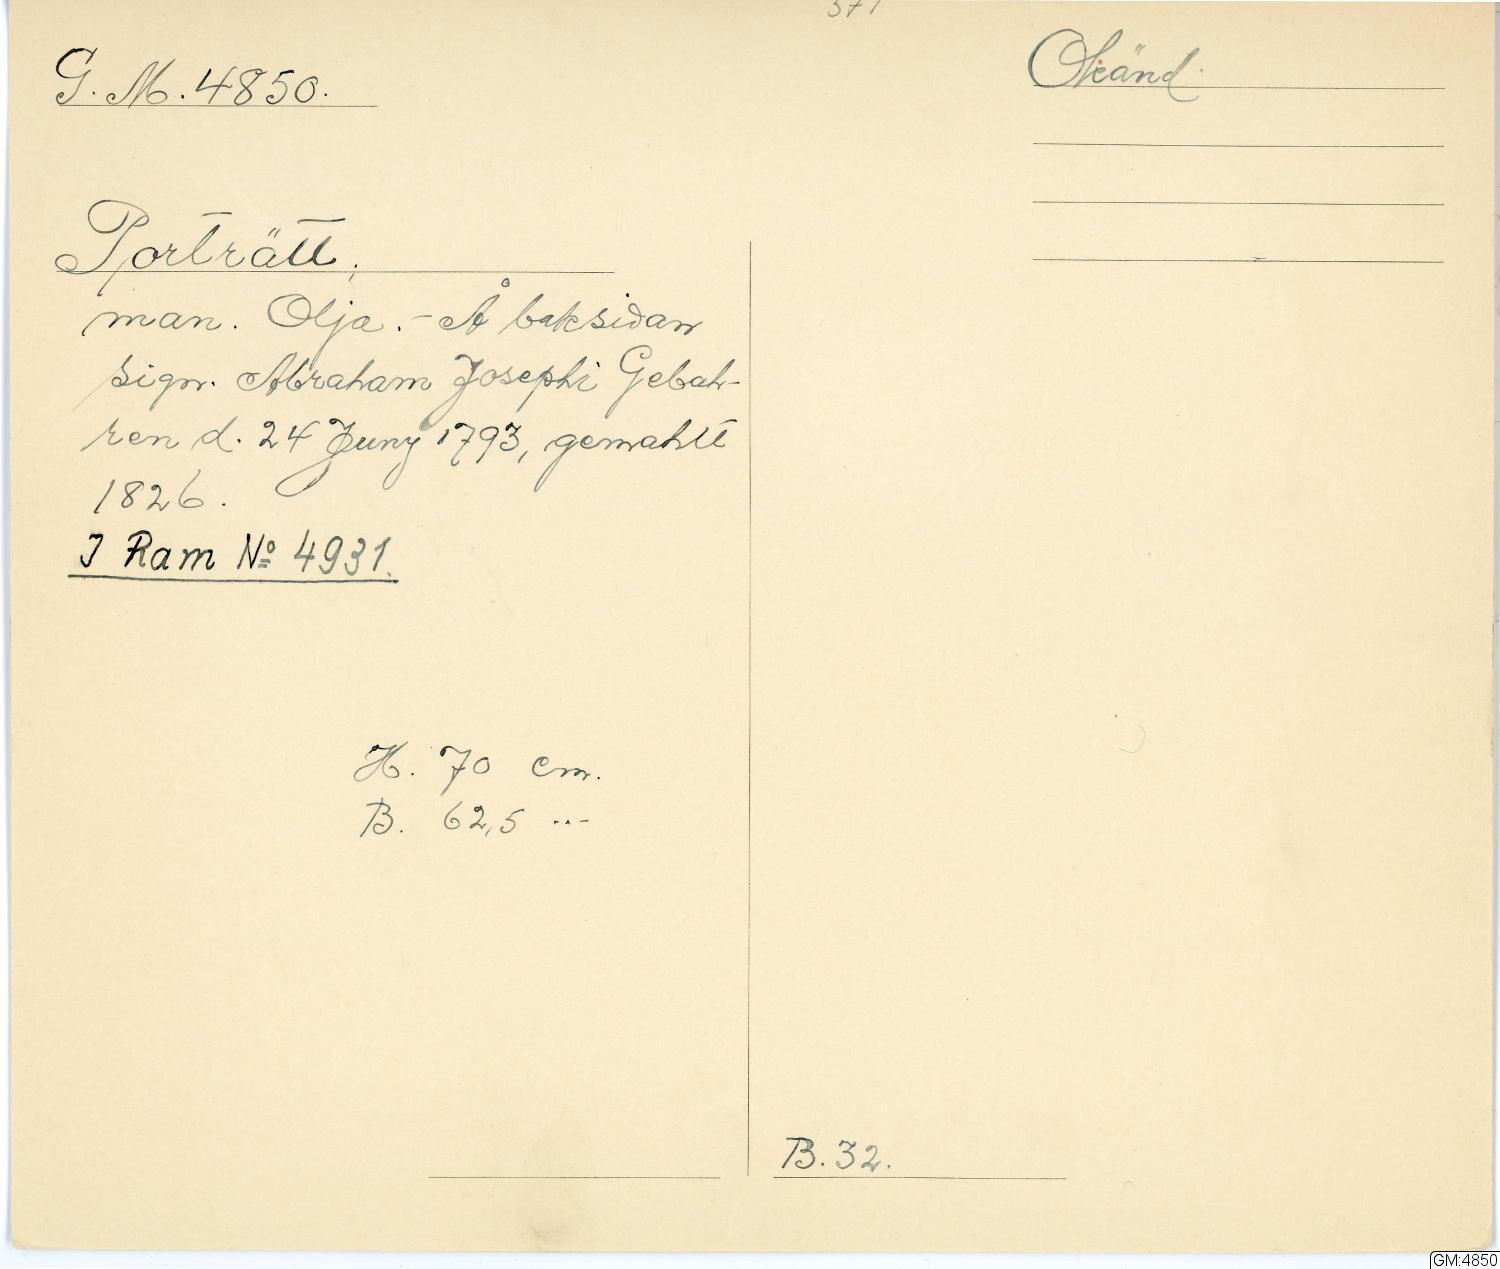 G. M. 4850.
Okänd.
Porträtt,
man. Olja. - Å baksidan
sign. Abraham Josephi Gebah-
ren d. 24 Juny 1793, gemahlt
1826.
I Ram № 4931.
H. 70 cm.
B. 62,5 -"-
B. 32.
GM:4850